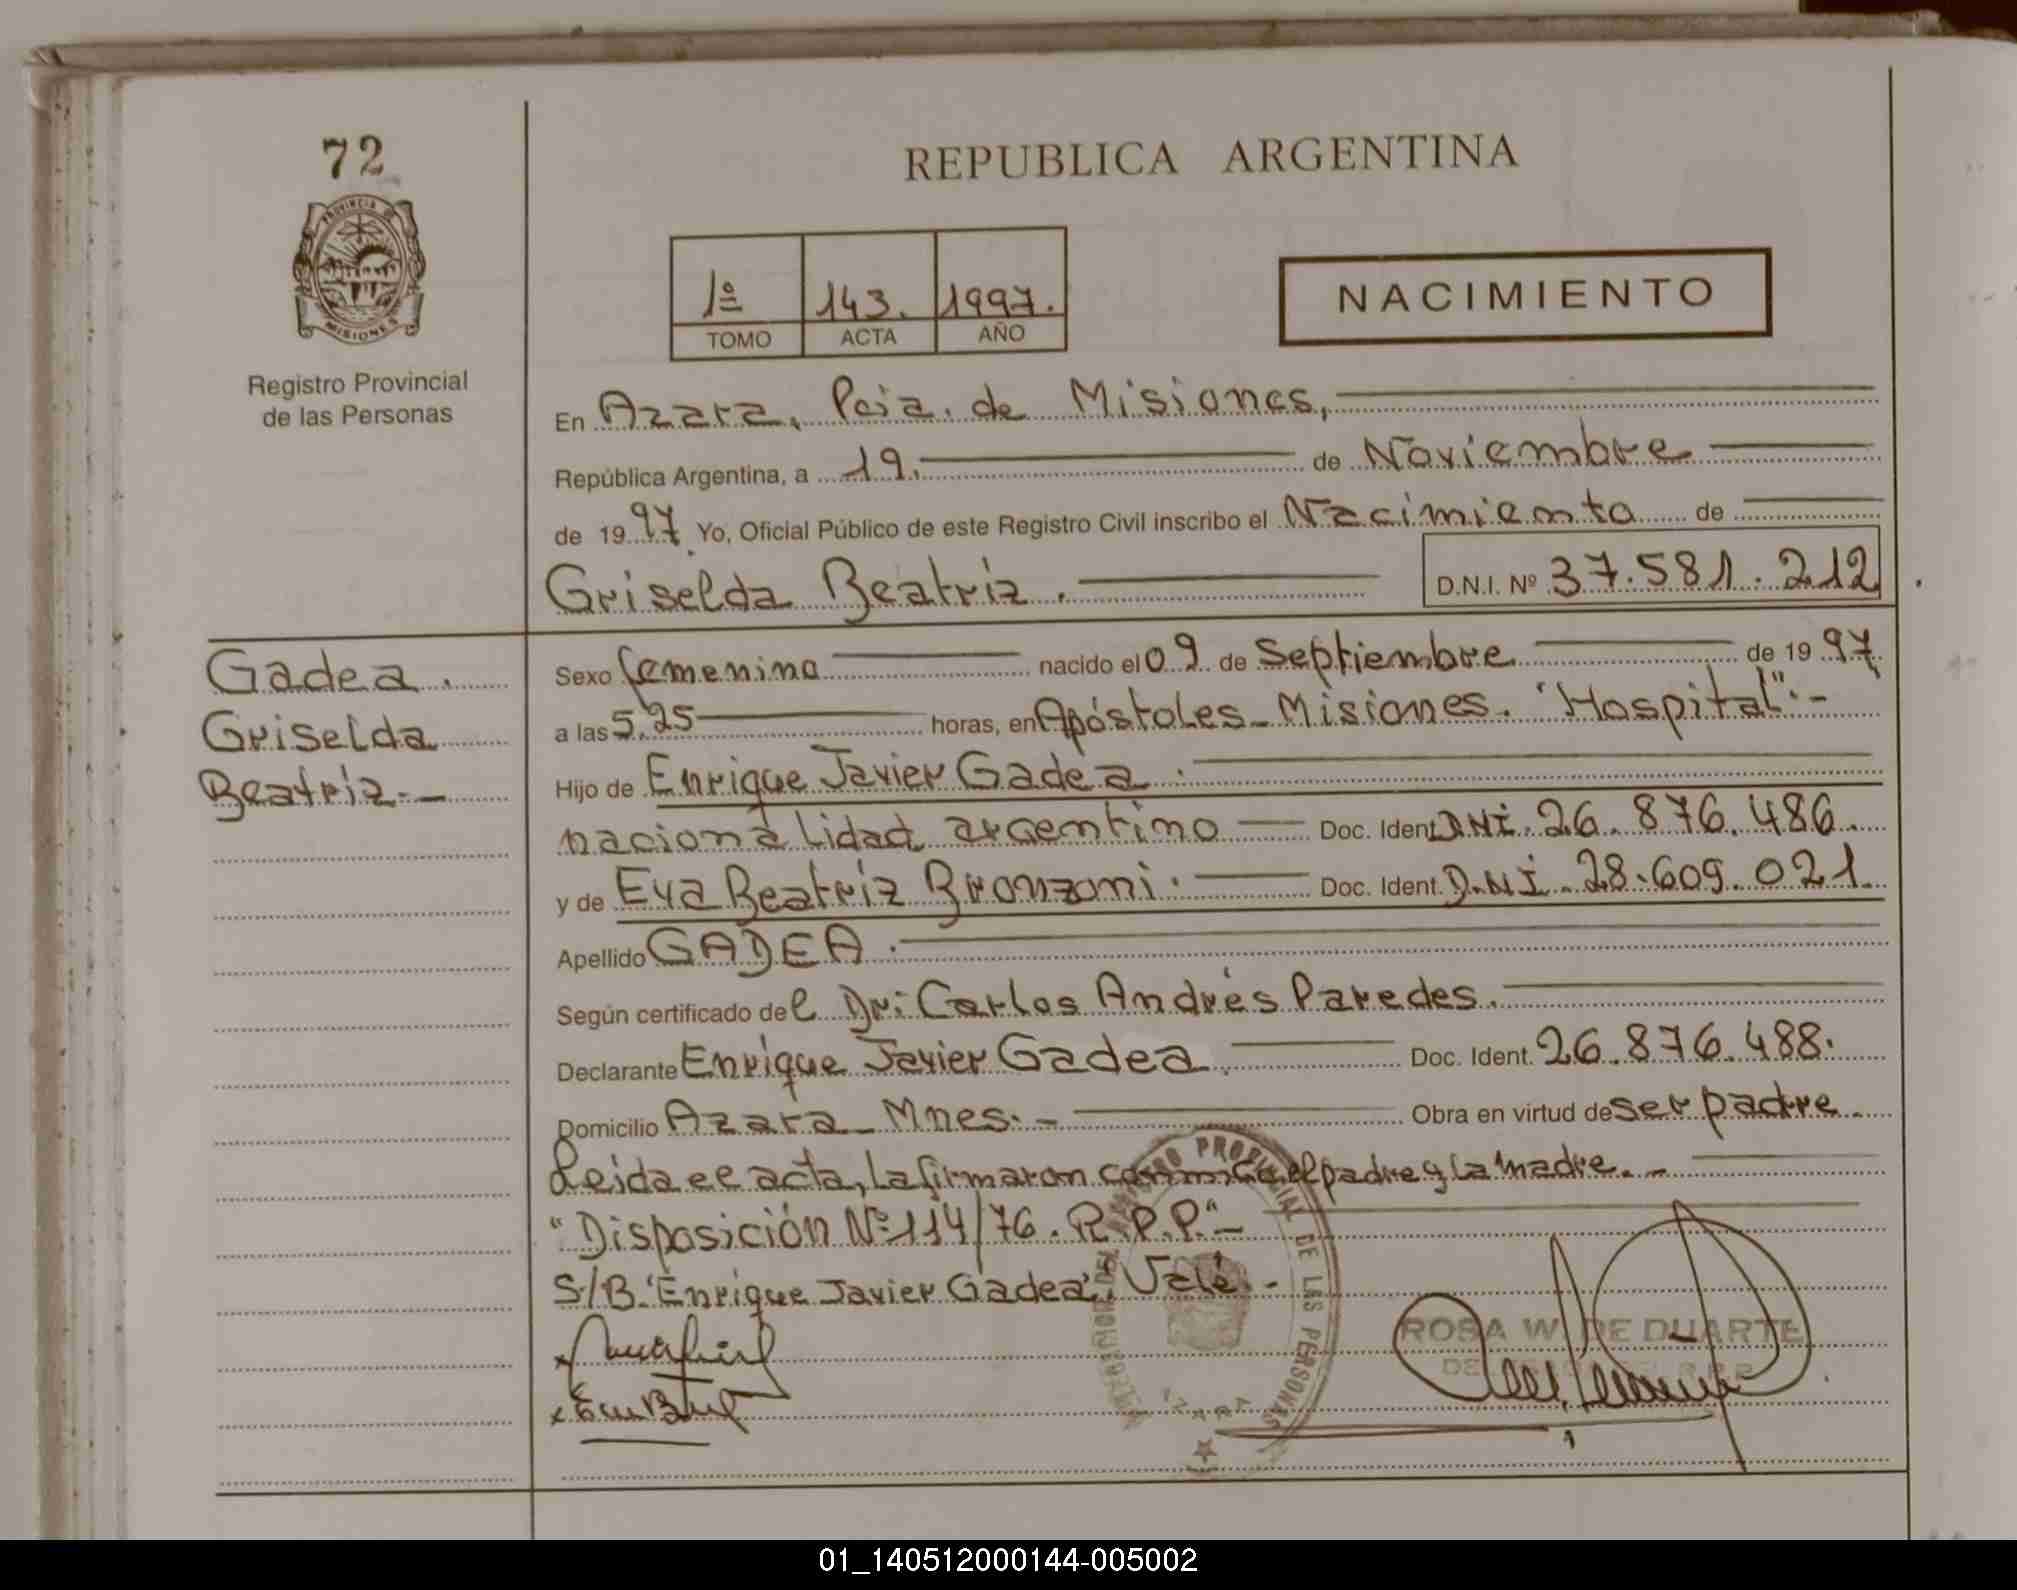 72
PROVINCIA DE
MISIONES
Registro Provincial
de las Personas
REPUBLICA ARGENTINA
1º 143. 1997.
TOMO ACTA AÑO
NACIMIENTO
En Azara, Pcia. de Misiones,
República Argentina, a 19. de Noviembre
de 1997. Yo, Oficial Público de este Registro Civil inscribo el Nacimiento de
Griselda Beatriz. D.N.I. Nº 37.581.212
Gadea.
Griselda
Beatriz.-
Sexo femenino nacido el 09 de Septiembre de 1997
a las 5,25 horas, en Apóstoles-Misiones. "Hospital".-
Hijo de Enrique Javier Gadea.
nacionalidad argentino Doc. Ident. DNI. 26.876.486.
y de Eva Beatriz Bronzoni. Doc. Ident. D.N.I. 28.609.021
Apellido GADEA.
Según certificado del Dr: Carlos Andrés Paredes.
Declarante Enrique Javier Gadea. Doc. Ident. 26.876.488.
Domicilio Azara-Mnes.- Obra en virtud de ser padre.
Leida el acta, la firmaron conmigo el padre y la madre.-
"Disposición Nº 114/76. R.P.P."-
S/B. "Enrique Javier Gadea", Vale.-
REGISTRO PROVINCIAL DE LAS PERSONAS
AZARA
ROSA W. DE DUARTE
01_140512000144-005002